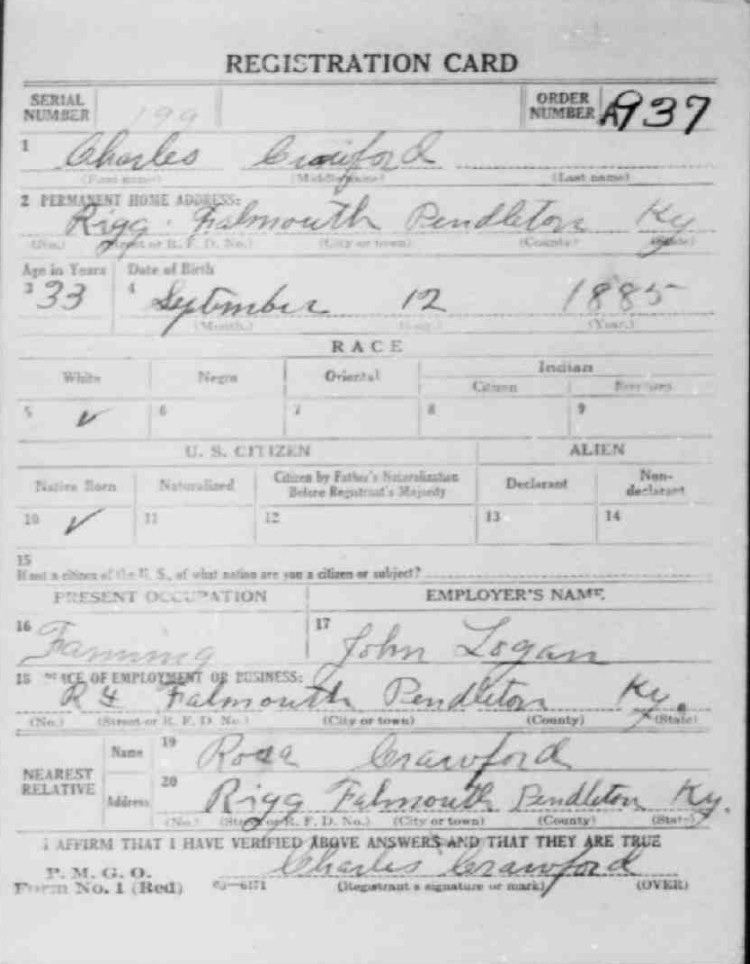 REGISTRATION CARD
SERIAL NUMBER 199 ORDER NUMBER A937
1 Charles Crawford
(First name) (Middle name) (Last name)
2 PERMANENT HOME ADDRESS:
Rigg Falmouth Pendleton Ky
(No.) (Street or R. F. D. No.) (City or town) (County) (State)
Age in Years Date of Birth
3 33 4 September 12 1885
(Month.) (Day.) (Year.)
RACE
White Negro Oriental Indian
Citizen Noncitizen
5 ✓ 6 7 8 9
U. S. CITIZEN ALIEN
Native Born Naturalized Citizen by Father's Naturalization Before Registrant's Majority Declarant Non-declarant
10 ✓ 11 12 13 14
15
If not a citizen of the U. S., of what nation are you a citizen or subject?
PRESENT OCCUPATION EMPLOYER'S NAME
16 Farming 17 John Logan
18 PLACE OF EMPLOYMENT OR BUSINESS:
R 4 Falmouth Pendleton Ky.
(No.) (Street or R. F. D. No.) (City or town) (County) (State)
NEAREST RELATIVE Name 19 Rosa Crawford
Address 20 Rigg Falmouth Pendleton Ky.
(No.) (Street or R. F. D. No.) (City or town) (County) (State)
I AFFIRM THAT I HAVE VERIFIED ABOVE ANSWERS AND THAT THEY ARE TRUE
P. M. G. O.
Form No. 1 (Red) 03—6171 Charles Crawford
(Registrant's signature or mark) (OVER)